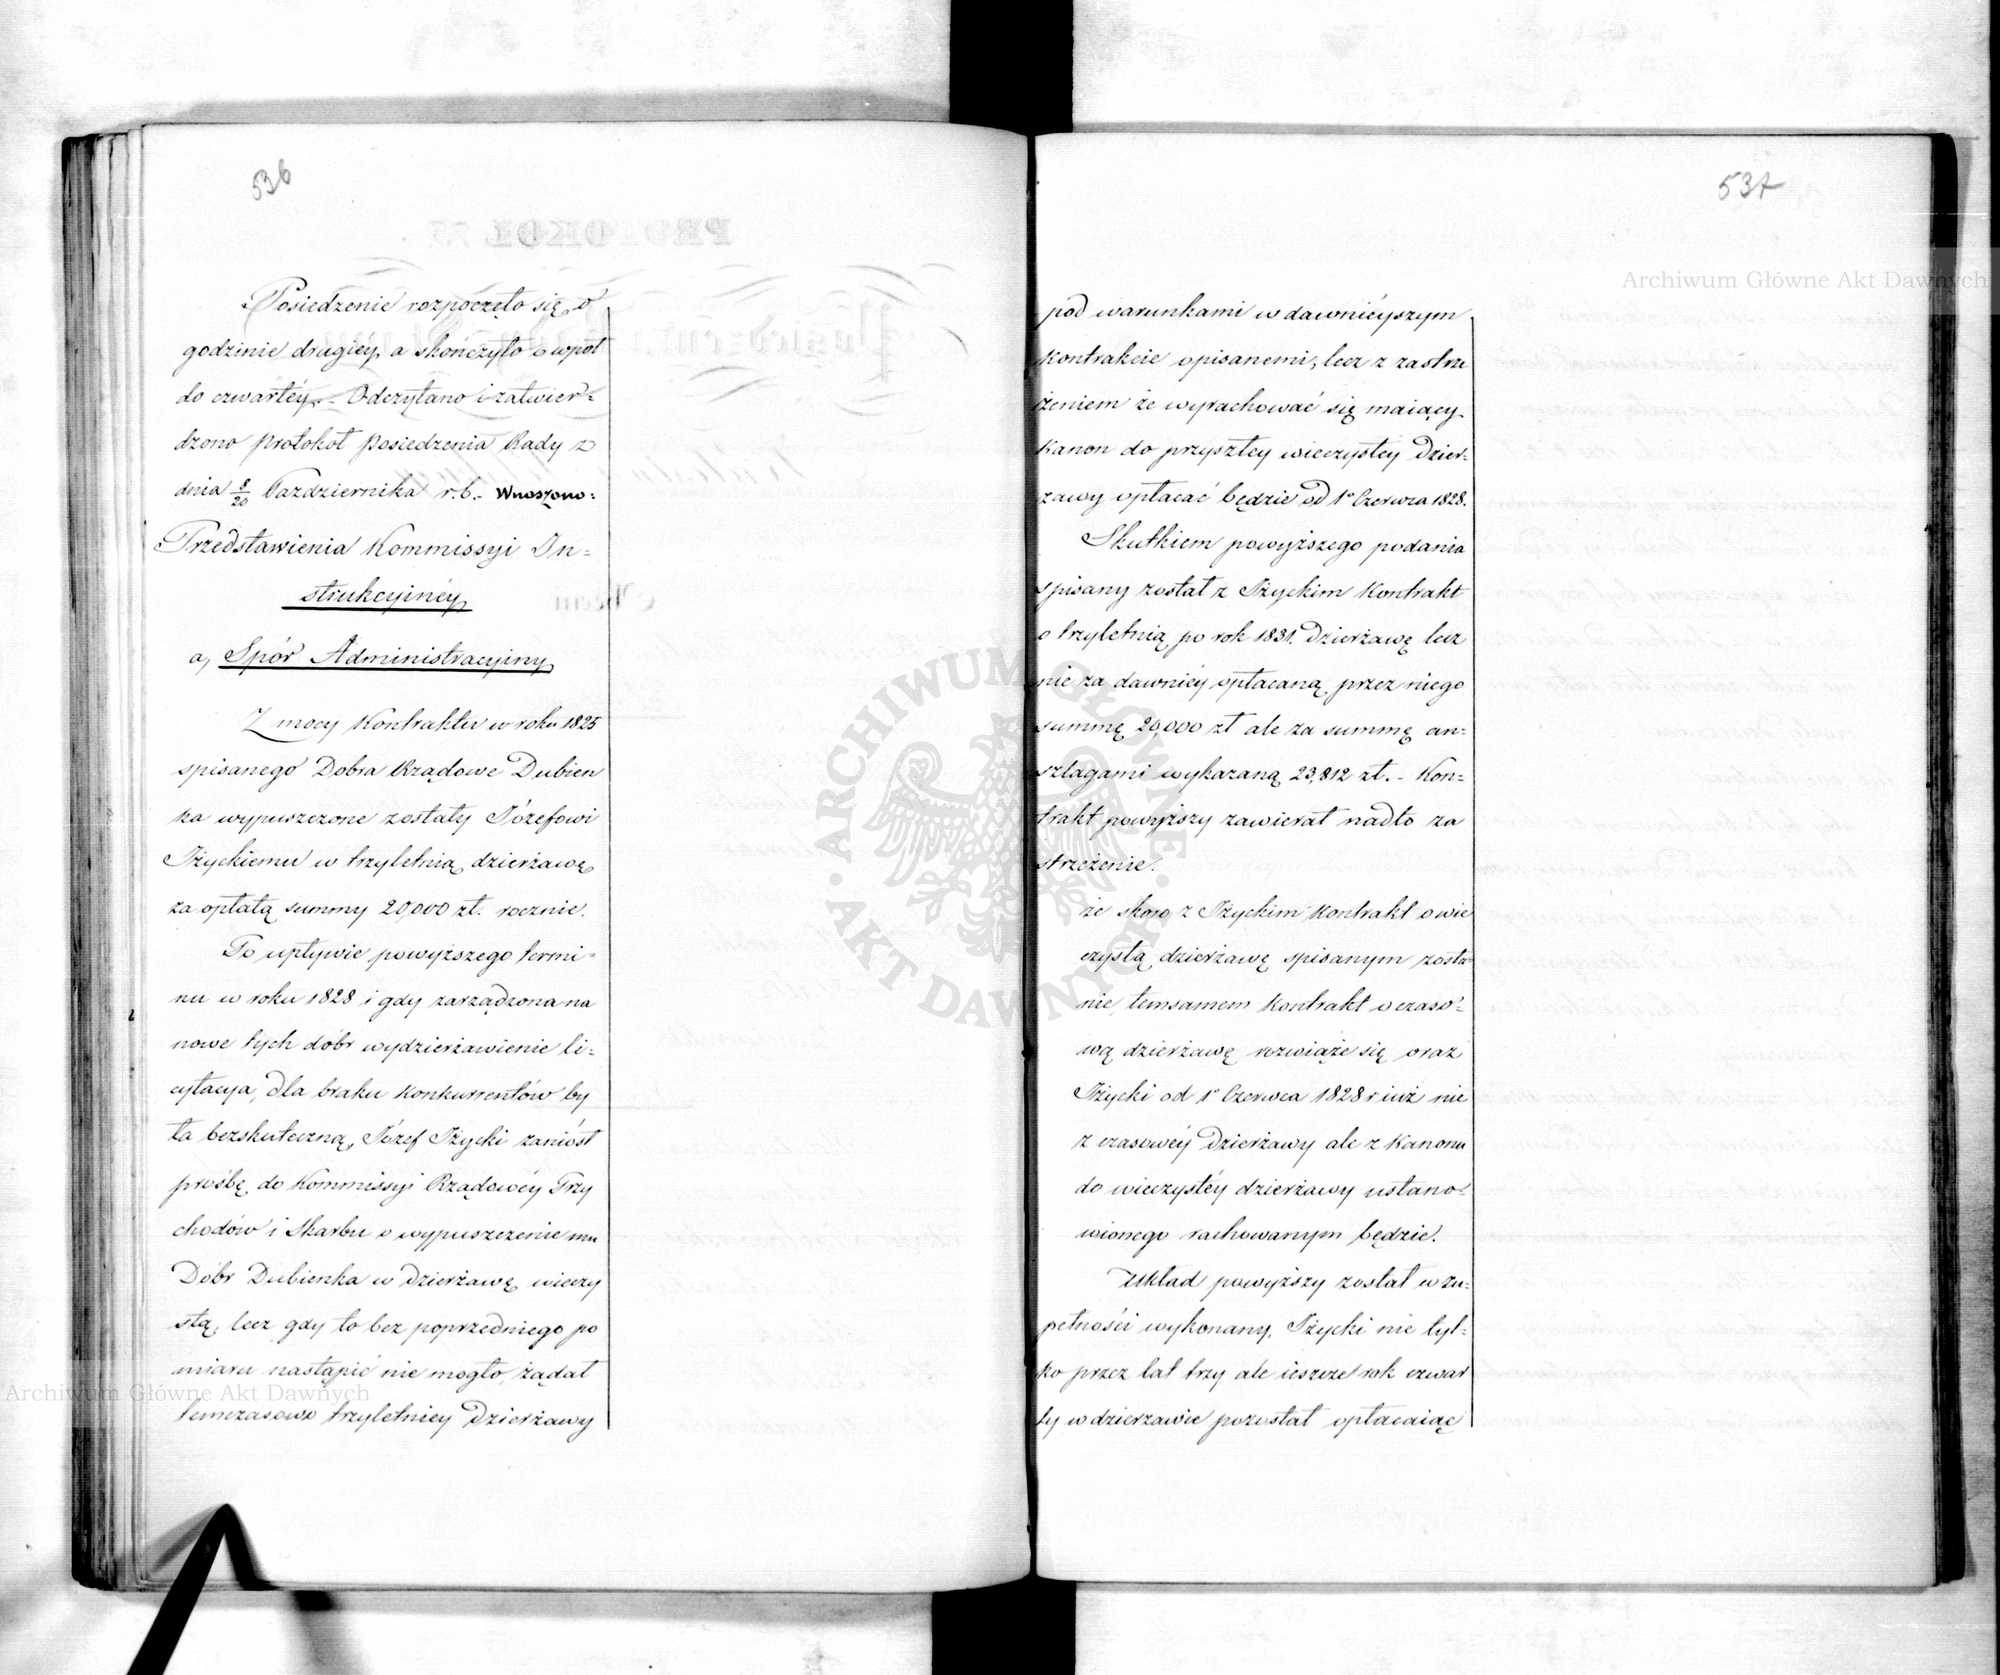 536
Posiedzenie rozpoczęło się o
godzinie drugiey, a skończyło o wpół
do czwartéy. – Odczytano i zatwier=
dzono protokół posiedzenia Rady z
dnia 8/20 Października r.b. – Wnoszono:
Przedstawienia Kommissyi In=
strukcyinéy
a, Spór Administracyiny
Z mocy Kontraktu w roku 1825
spisanego Dobra Rządowe Dubien
ka wypuszczone zostały Józefowi
Iżyckiemu w trzyletnią dzierżawę
za opłatą summy 20,000 zł. rocznie.
Po upływie powyższego termi=
nu w roku 1828 i gdy zarządzona na
nowe tych dóbr wydzierżawienie li=
cytacya, dla braku konkurrentów by
ła bezskuteczną, Józef Iżycki zaniósł
prośbę do Kommissyi Rządowéy Przy
chodów i Skarbu o wypuszczenie mu
Dóbr Dubienka w dzierżawę wieczy
stą, lecz gdy to bez poprzedniego po
miaru nastąpić nie mogło, żądał
temczasowo trzyletniey Dzierżawy
537
pod warunkami w dawnieyszym
Kontrakcie opisanemi, lecz z zastrze
żeniem że wyrachować się maiący
Kanon do przyszłey wieczystey Dzier=
zawy opłacać będzie od 1o Czerwca 1828.
Skutkiem powyższego podania
spisany został z Iżyckim Kontrakt
o trzyletnią po rok 1831. Dzierżawę lecz
nie za dawniéy opłacaną przez niego
summę 20,000 zł ale za summę an=
szlagami wykazaną 23,812 zł. – Kon=
trakt powyższy zawierał nadto za
strzeżenie.
że skoro z Iżyckim Kontrakt o wie
czystą dzierżawę spisanym zosta=
nie, temsamem Kontrakt o czaso=
wą dzierżawę rozwiąże się oraz
Iżycki od 1o Czerwca 1828 r. iuż nie
z czasowéy Dzierżawy ale z Kanonu
do wieczystéy dzierżawy ustano=
wionego rachowanym będzie.
Układ powyższy został w zu=
pełności wykonany, Iżycki nie tyl=
ko przez lat trzy ale ieszcze rok czwar
ty w dzierżawie pozostał opłacaiąc
Archiwum Główne Akt Dawnych
Archiwum Główne Akt Dawnych
ARCHIWUM GŁÓWNE
AKT DAWNYCH